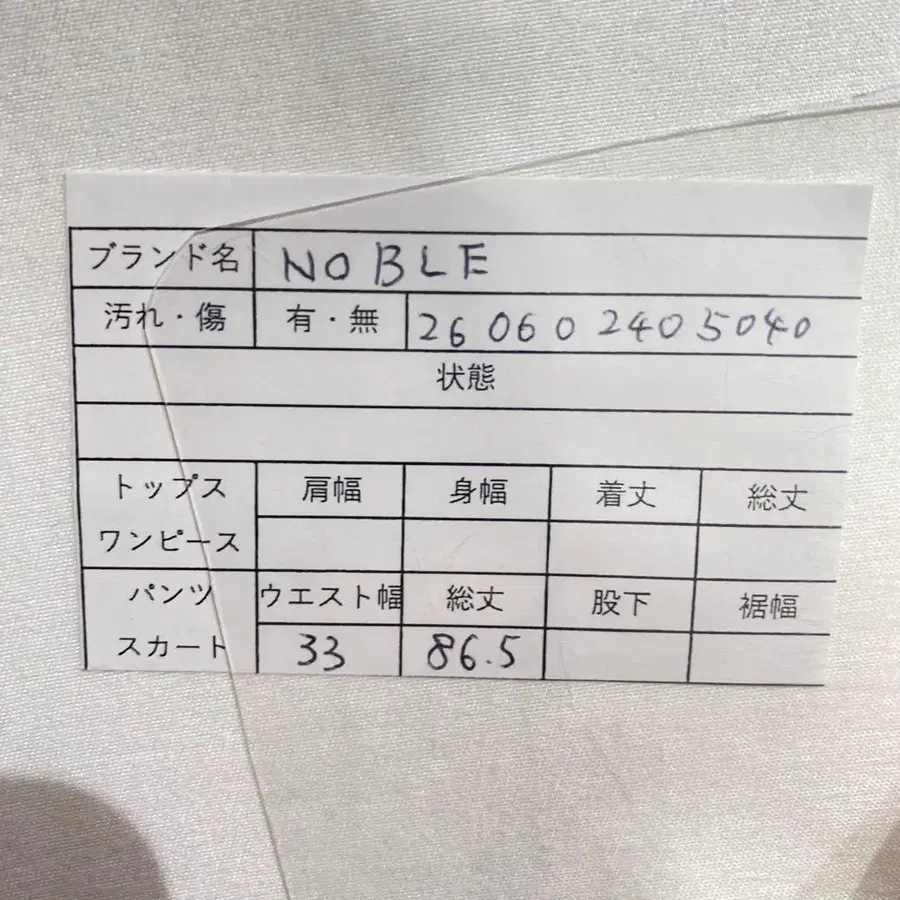 ブランド名 NOBLE
汚れ・傷 有・無 26060 2405040
状態
トップス 肩幅 身幅 着丈 総丈
ワンピース
パンツ ウエスト幅 総丈 股下 裾幅
スカート 33 86.5